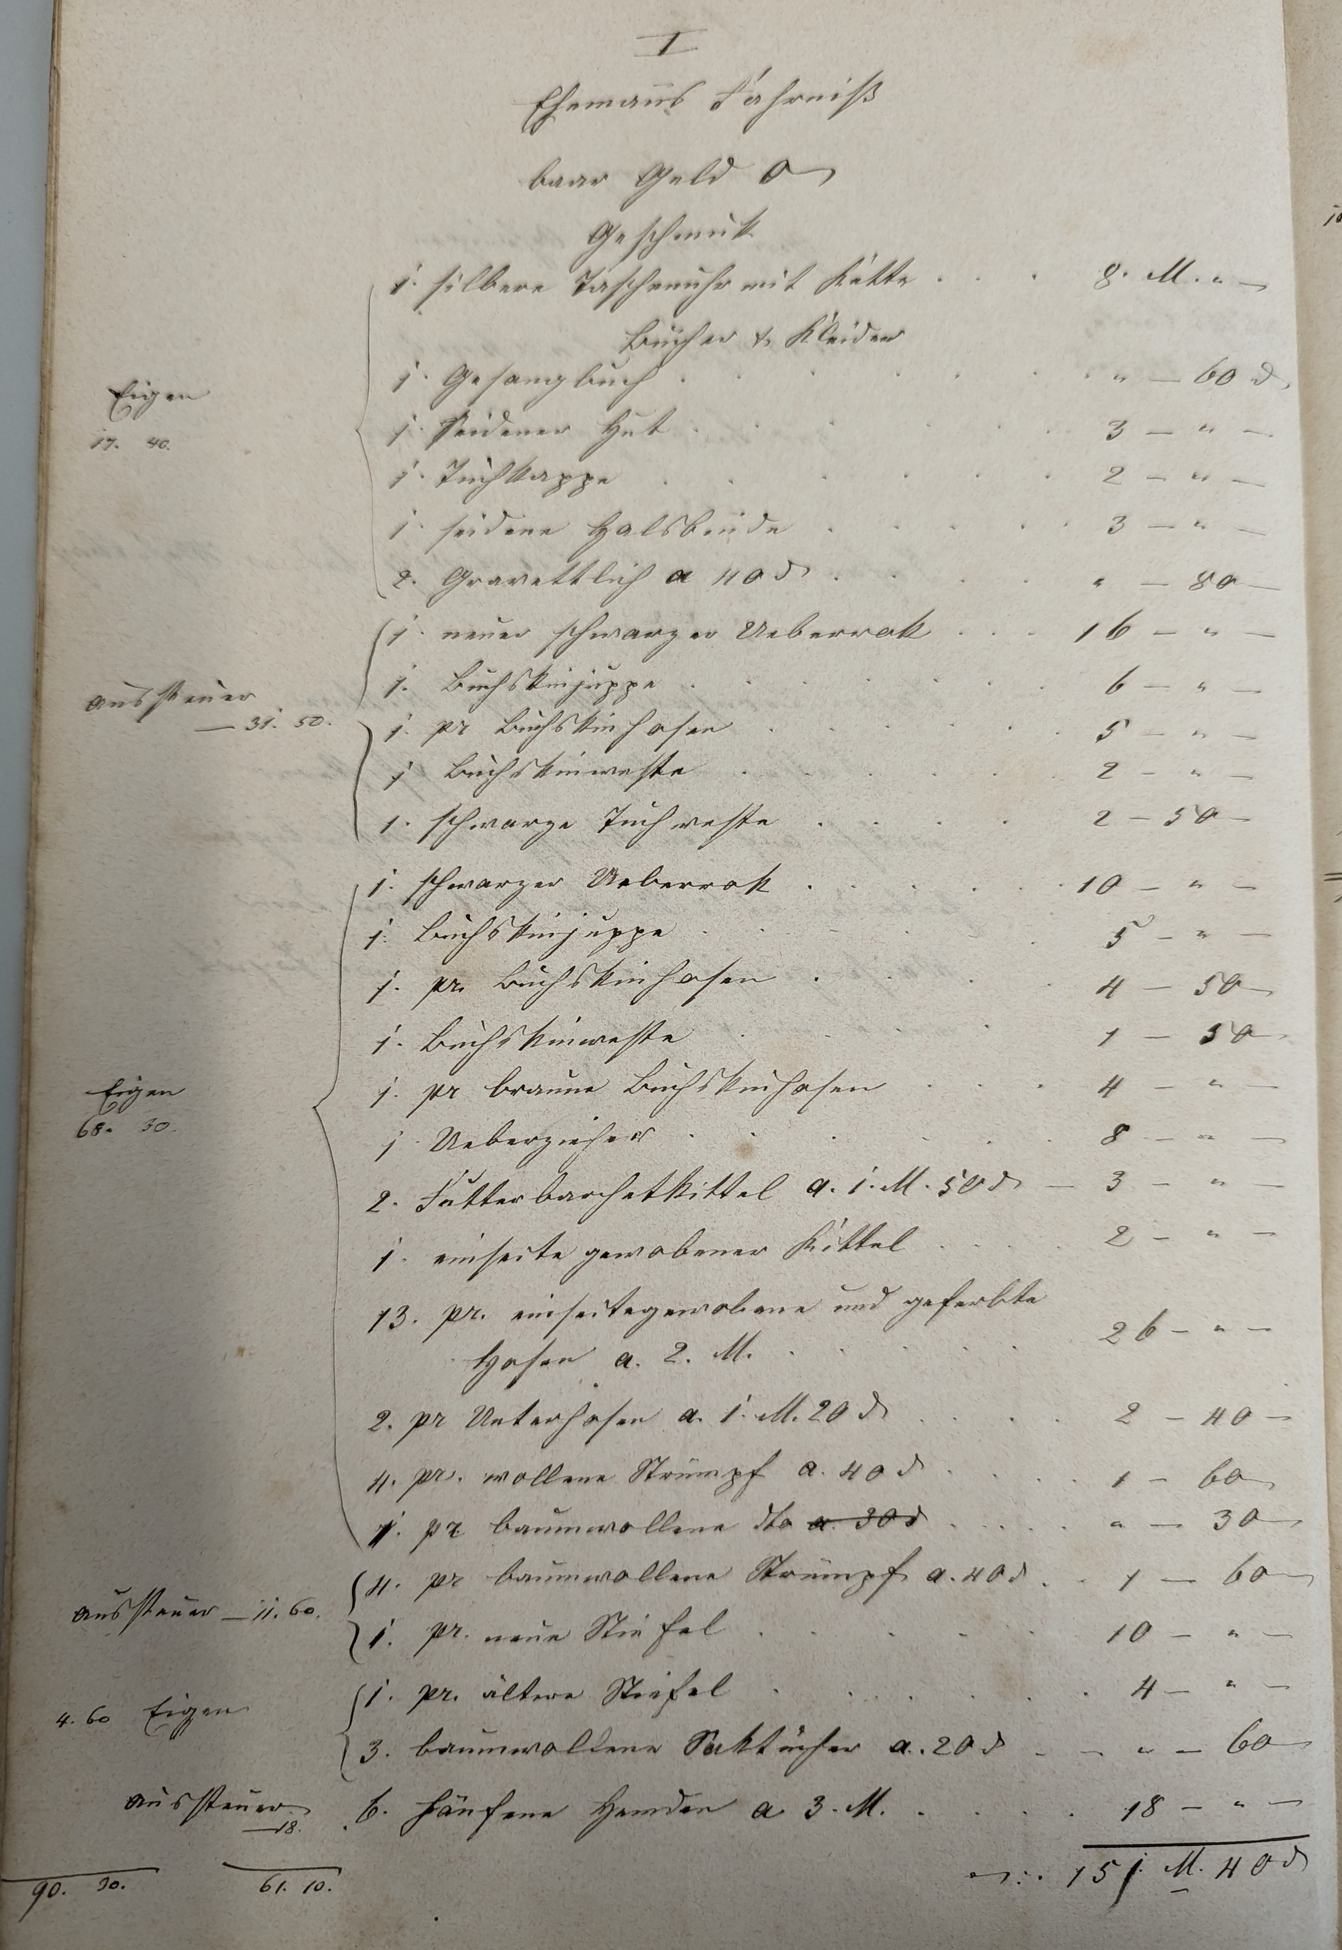 I
Ehemanns Fahrniß
baar Geld 0
Geschmuk
1. silberne Taschenuhr mit Kette . . . 8. M. " —
Bücher & Kleider
Eigen
17. 40.
1. Gesangbuch . . . . . . " — 60 ₰
1. Seidener Hut . . . . . 3 — " —
1. Tuchkappe . . . . . 2 — " —
1. seidene Halsbinde . . . . 3 — " —
2. Gravettlich a 40 ₰ . . . . " — 80 —
1. neuer schwarzer Ueberrok . . . 16 — " —
Aussteuer
— 31. 50.
1. Buchskinjuppe . . . . . 6 — " —
1. pr Buchskinhosen . . . . 5 — " —
1 Buchskinweste . . . . 2 — " —
1. schwarze Tuchweste . . . . 2 — 50 —
1. schwarzer Ueberrok . . . . 10 — " —
1. Buchskinjuppe . . . . 5 — " —
1. pr. Buchskinhosen . . . 4 — 50 —
1. Buchskinweste . . . . 1 — 50 —
Eigen
68. 30.
1. pr braune Buchskinhosen . . . 4 — " —
1 Ueberzieher . . . . . 8 — " —
2. Futterbarchetkittel a. 1. M. 50 ₰ — 3 — " —
1. einseite gewobener Kittel . . . . 2 — " —
13. pr. einseitegewobene und geferbte
Hosen a. 2. M. . . . . . 26 — " —
2. pr Unterhosen a. 1. M. 20 ₰ . . . . 2 — 40 —
4. pr. wollene Strümpf a. 40 ₰ . . . . 1 — 60
1. pr baumwollene dto a. 30 ₰ . . . . " — 30 —
4. pr baumwollene Strümpf a. 40 ₰ . . 1 — 60 —
Aussteuer — 11. 60.
1. pr. neue Stiefel . . . . . 10 — " —
1. pr. ältere Stiefel . . . . . . 4 — " —
4. 60 Eigen
3. baumwollene Saktücher a. 20 ₰ — — " — 60 —
Aussteuer
— 18.
6. hänfene Hemden a 3. M. . . . . 18 — " —
90. 30. 61. 10. 151. M. 40 ₰